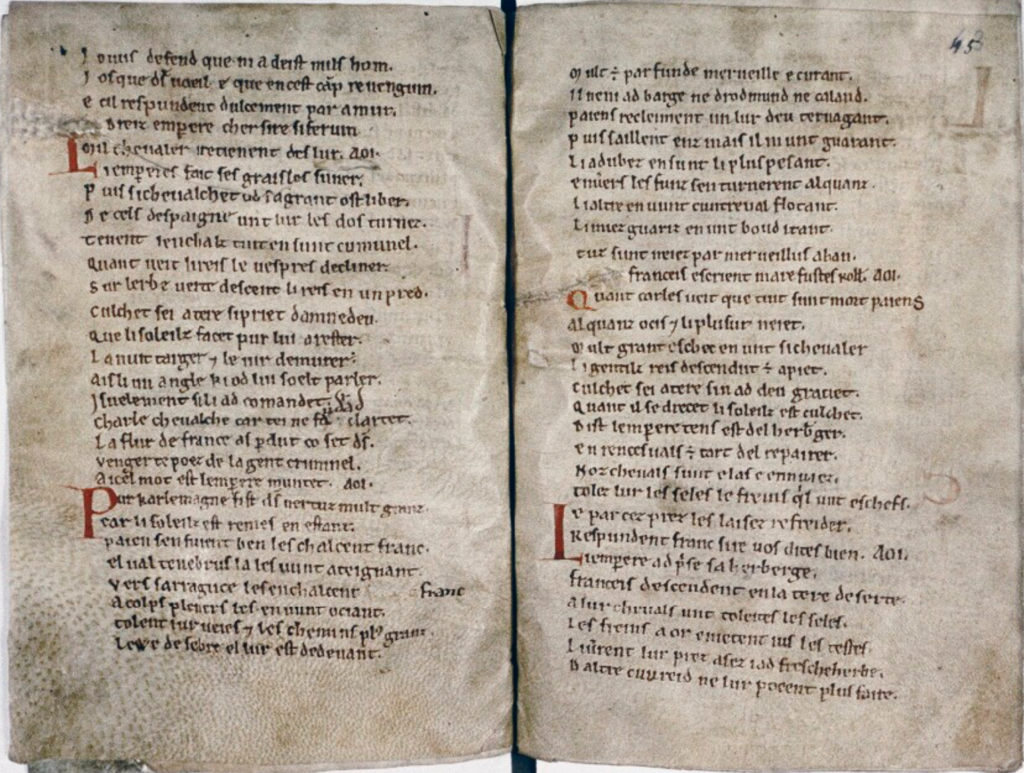 J ouus defend que ni adeist nuls hom.
J osque d's voeil e que en cest cap revengum.
e cil respundent dulcement par amur.
Dreiz emperere cher sire si ferum
Mil chevaler i retienent des lur. AOI.
Li empereres fait ses graisles suner.
Puis si chevalchet od sa grant ost li ber.
De cels despaigne unt lur les dos turnez.
tenent lenchalz tuit en sunt cumunel.
Quant veit li reis le vespres decliner.
Sur lerbe verte descent li reis en un pred.
Culchet sei a tere si priet damnedeu.
Que li soleilz facet pur lui arester.
La nuit targer 7 le iur demurer.
Ais li un angle ki od lui soelt parler.
Isnelement si li ad comandet.
Charle chevalche car tei ne clartet.
La flur de france as pdut co set ds.
Venger te poez de la gent criminel.
A icel mot est lemperere muntet. AOI.
Pur karlemagne fist ds vertuz mult granz.
Car li soleilz est remes en estant.
paien sen fuient ben les chalcent franc.
el val tenebrus la les vunt ateignant.
Vers sarraguce les enchalcent franc
A colps pleners les en vunt ociant.
tolent lur veies 7 les chemins pl' granz.
Lewe de sebre el lur est dedevant.
45
Mult ÷ parfunde merveille e curant.
Il nen i ad barge ne drodmund ne caland.
paiens recleiment un lur deu tervagant.
puis saillent enz mais il ni unt guarant.
Li adubez en sunt li plus pesant.
envers les funz sen turnerent alquanz.
Li altre en vunt cuntreval flotant.
Li miez guariz en unt boud itant.
tuz sunt neiez par merveillus ahan.
franceis escrient mare fustes roll. AOI.
Quant carles veit que tuit sunt mort paiens
Alquanz ocis 7 li plusur neiet.
Mult grant eschec en unt si chevaler
Li gentilz reis descendut ÷ a piet.
culchet sei a tere sin ad deu graciet.
Quant il se drecet li soleilz est culchet.
Dist lemperere tens est del herberger.
en rencesvals ÷ tart del repairer.
Noz chevals sunt e las e ennuiez.
tolez lur les seles le freins q'l unt es chefs.
e par cez prez les laisez refreider.
Respundent franc sire vos dites bien. AOI.
Li emperere ad p'se sa herberge.
franceis descendent en la tere deserte.
A lur chevals unt toleites les seles.
Les freins a or e metent ius les testes.
Livrent lur prez asez i ad fresche herbe.
D altre cunreid ne lur poeent plus faire.